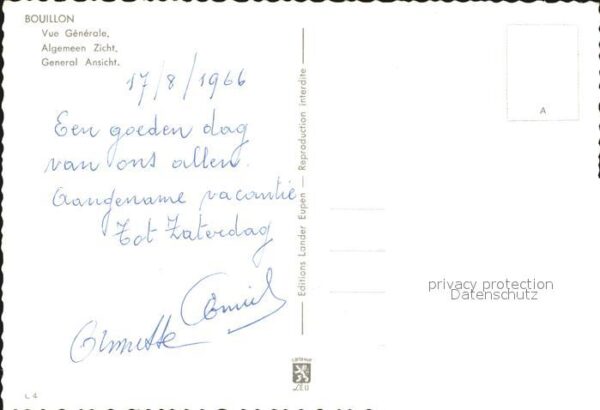 BOUILLON
Vue Générale.
Algemeen Zicht.
General Ansicht.
17/8/1966
Een goeden dag
van ons allen.
Aangename vacantie
Tot Zaterdag
Editions Lander Eupen — Reproduction interdite
A
privacy protection
Datenschutz
L 4